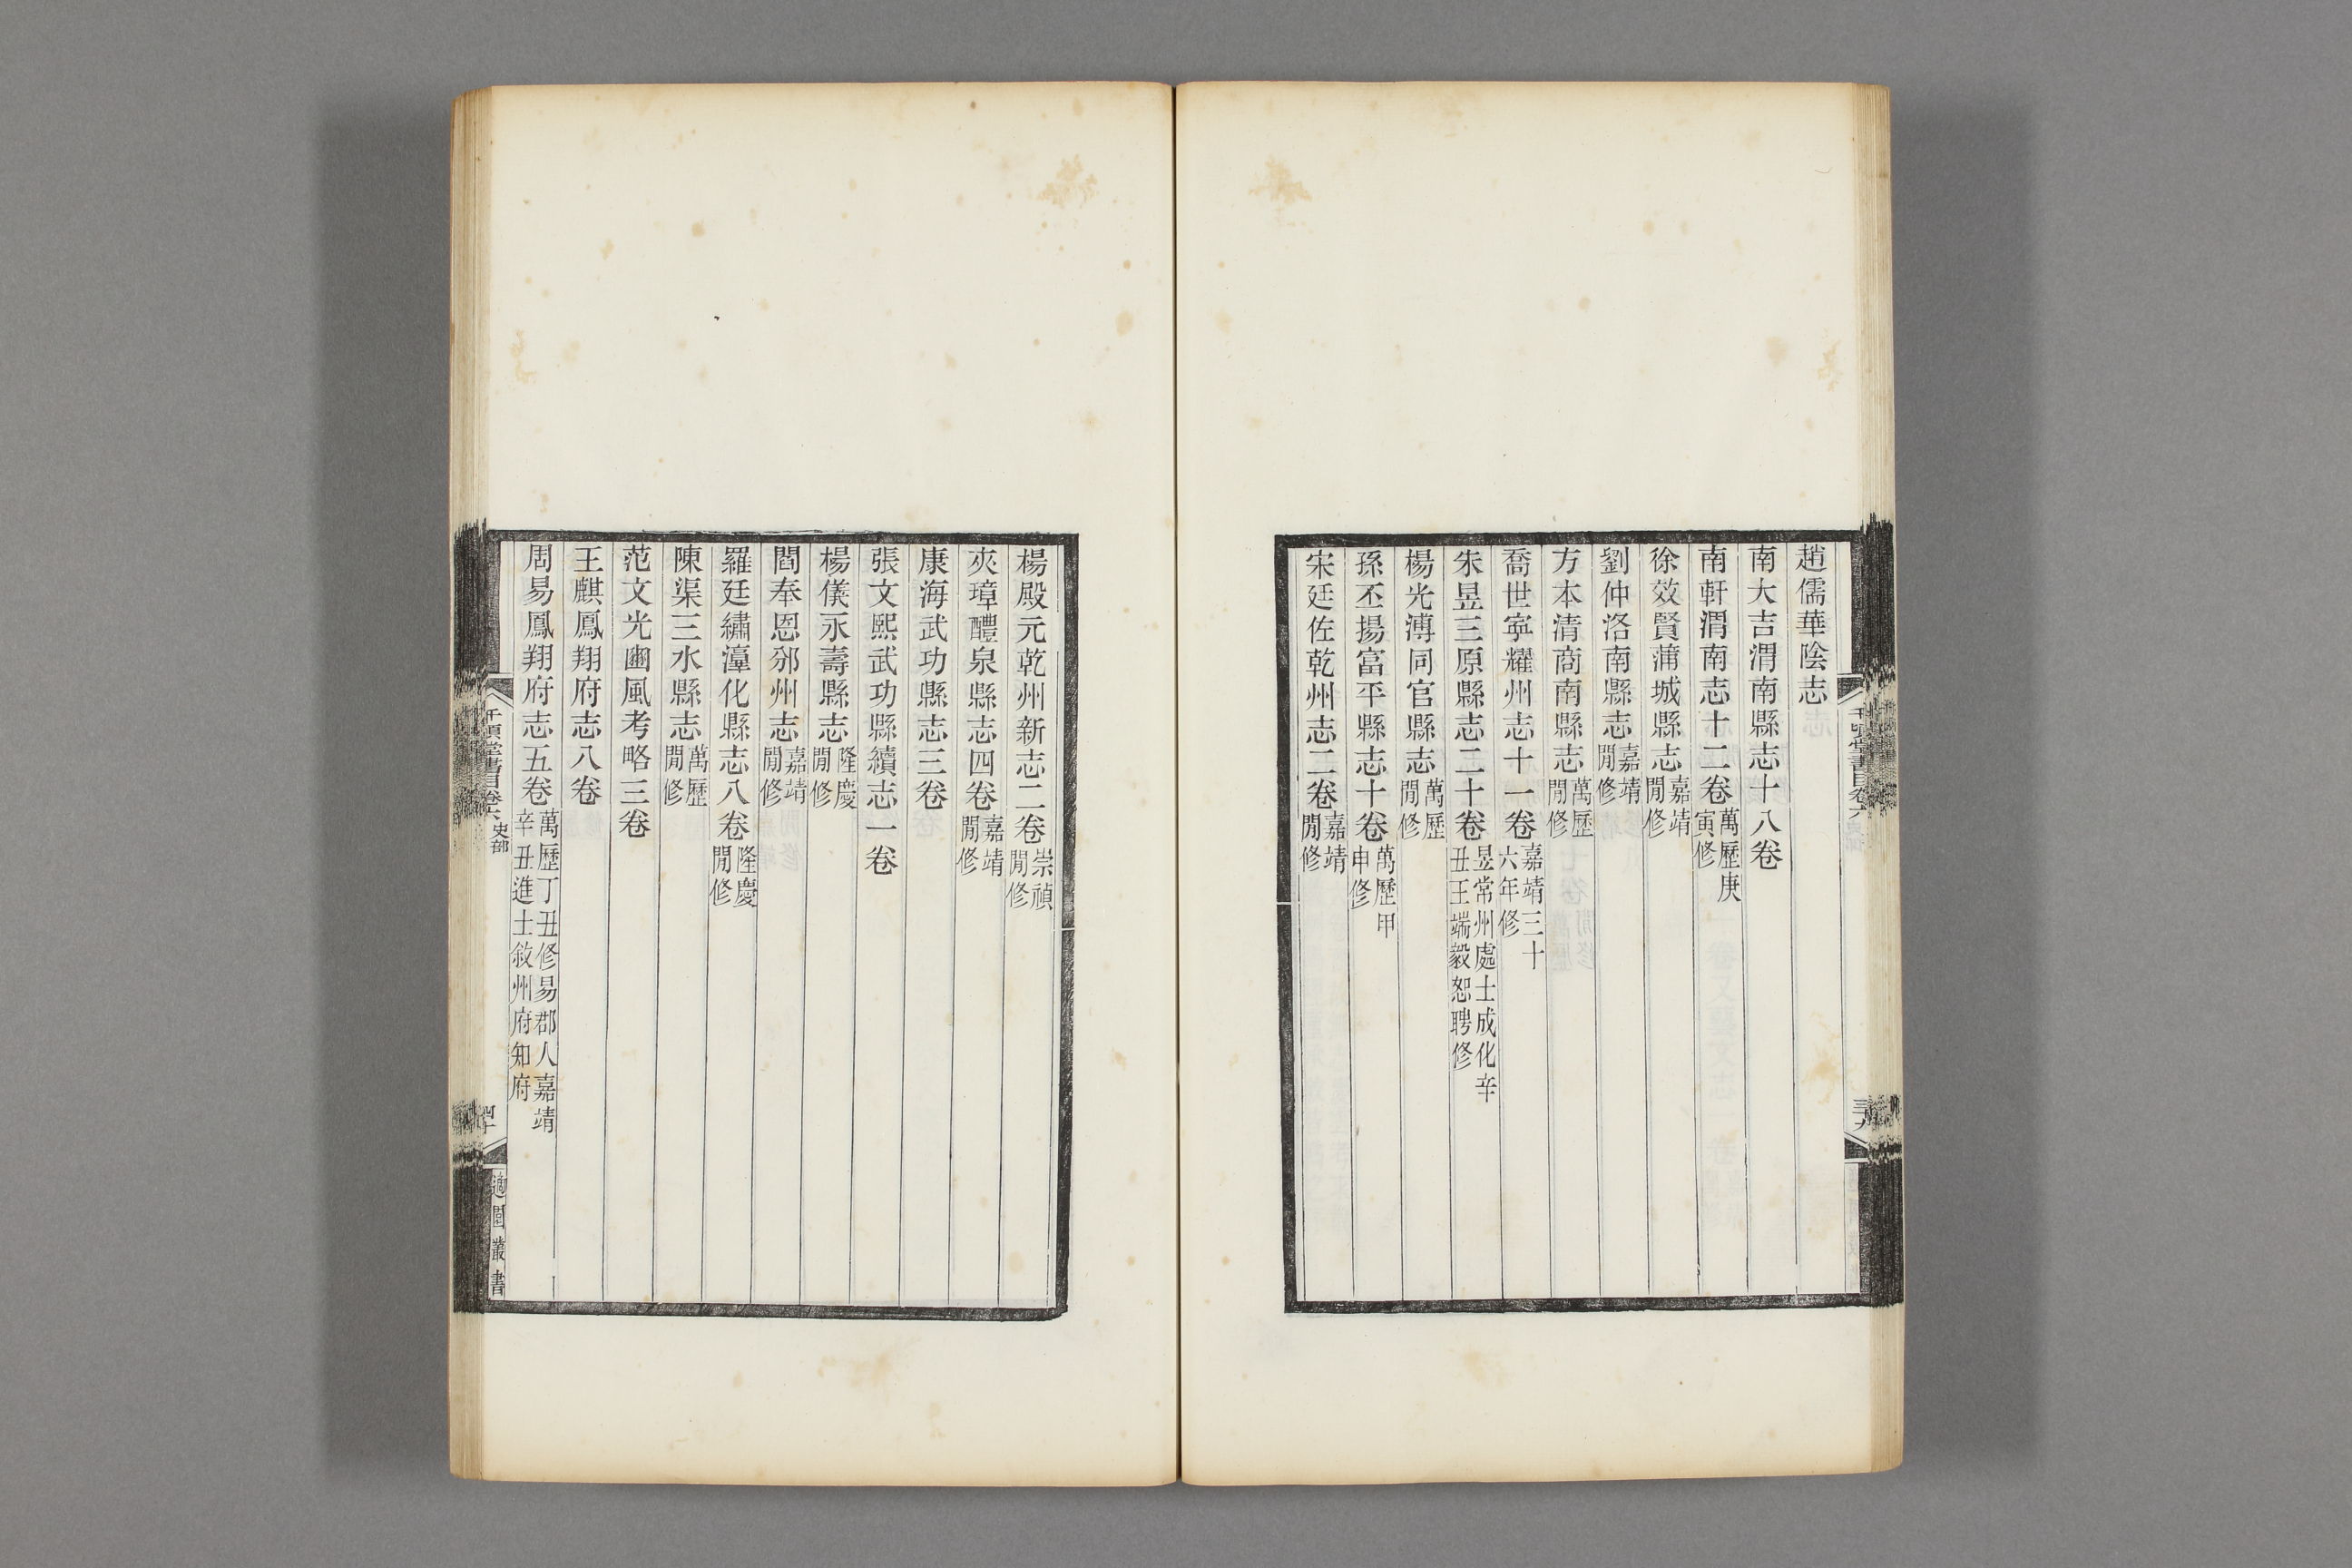 趙儒華陰志
南大吉渭南縣志十八卷
南軒渭南志十二卷萬歷庚寅修
徐效賢蒲城縣志嘉靖閒修
劉仲洛南縣志嘉靖閒修
方本清商南縣志萬歷閒修
喬世寧耀州志十一卷嘉靖三十六年修
朱昱三原縣志二十卷昱常州處士成化辛丑王端毅恕聘修
楊光溥同官縣志萬歷閒修
孫丕揚富平縣志十卷萬歷甲申修
宋廷佐乾州志二卷嘉靖閒修
楊殿元乾州新志二卷崇禎閒修
夾璋醴泉縣志四卷嘉靖閒修
康海武功縣志三卷
張文熙武功縣續志一卷
楊儀永壽縣志隆慶閒修
閻奉恩邠州志嘉靖閒修
羅廷繡淳化縣志八卷隆慶閒修
陳渠三水縣志萬歷閒修
范文光豳風考略三卷
王麒鳳翔府志八卷
周易鳳翔府志五卷萬歷丁丑修易郡人嘉靖辛丑進士敘州府知府
千頃堂書目卷六 史部
四十
適園叢書